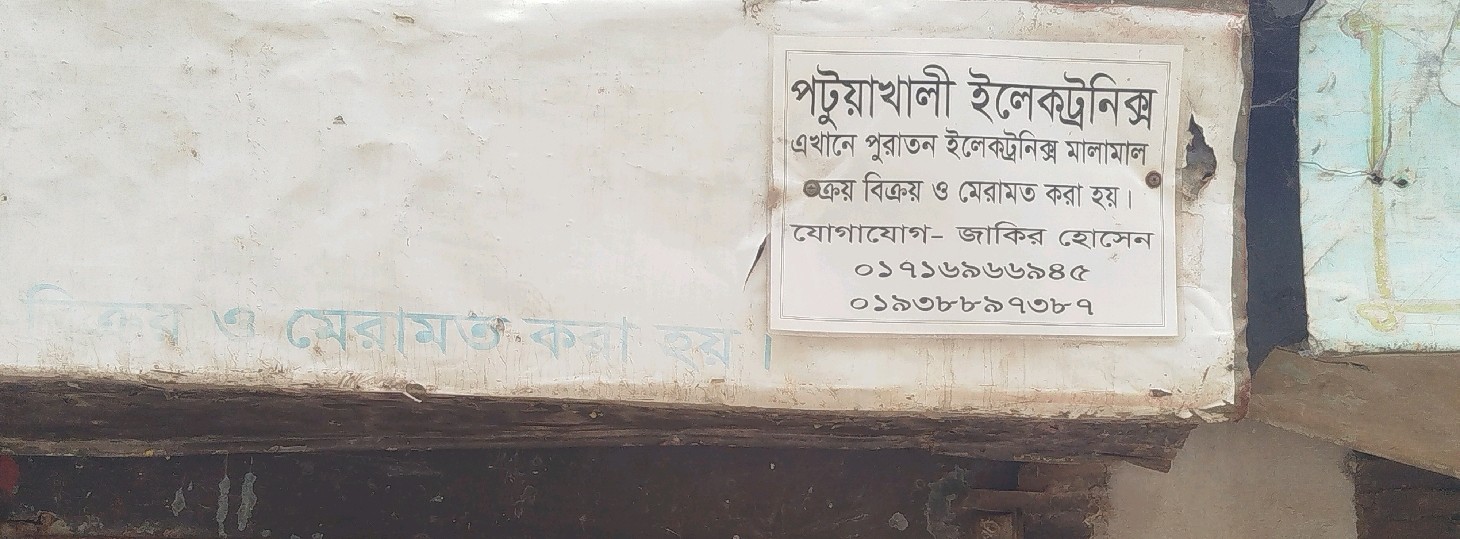 পটুয়াখালী ইলেকট্রনিক্স
এখানে পুরাতন ইলেকট্রনিক্স মালামাল
ক্রয় বিক্রয় ও মেরামত করা হয়।
যোগাযোগ- জাকির হোসেন
০১৭১৬৯৬৬৯৪৫
০১৯৩৮৮৯৭৩৮৭
বিক্রয় ও মেরামত করা হয়।